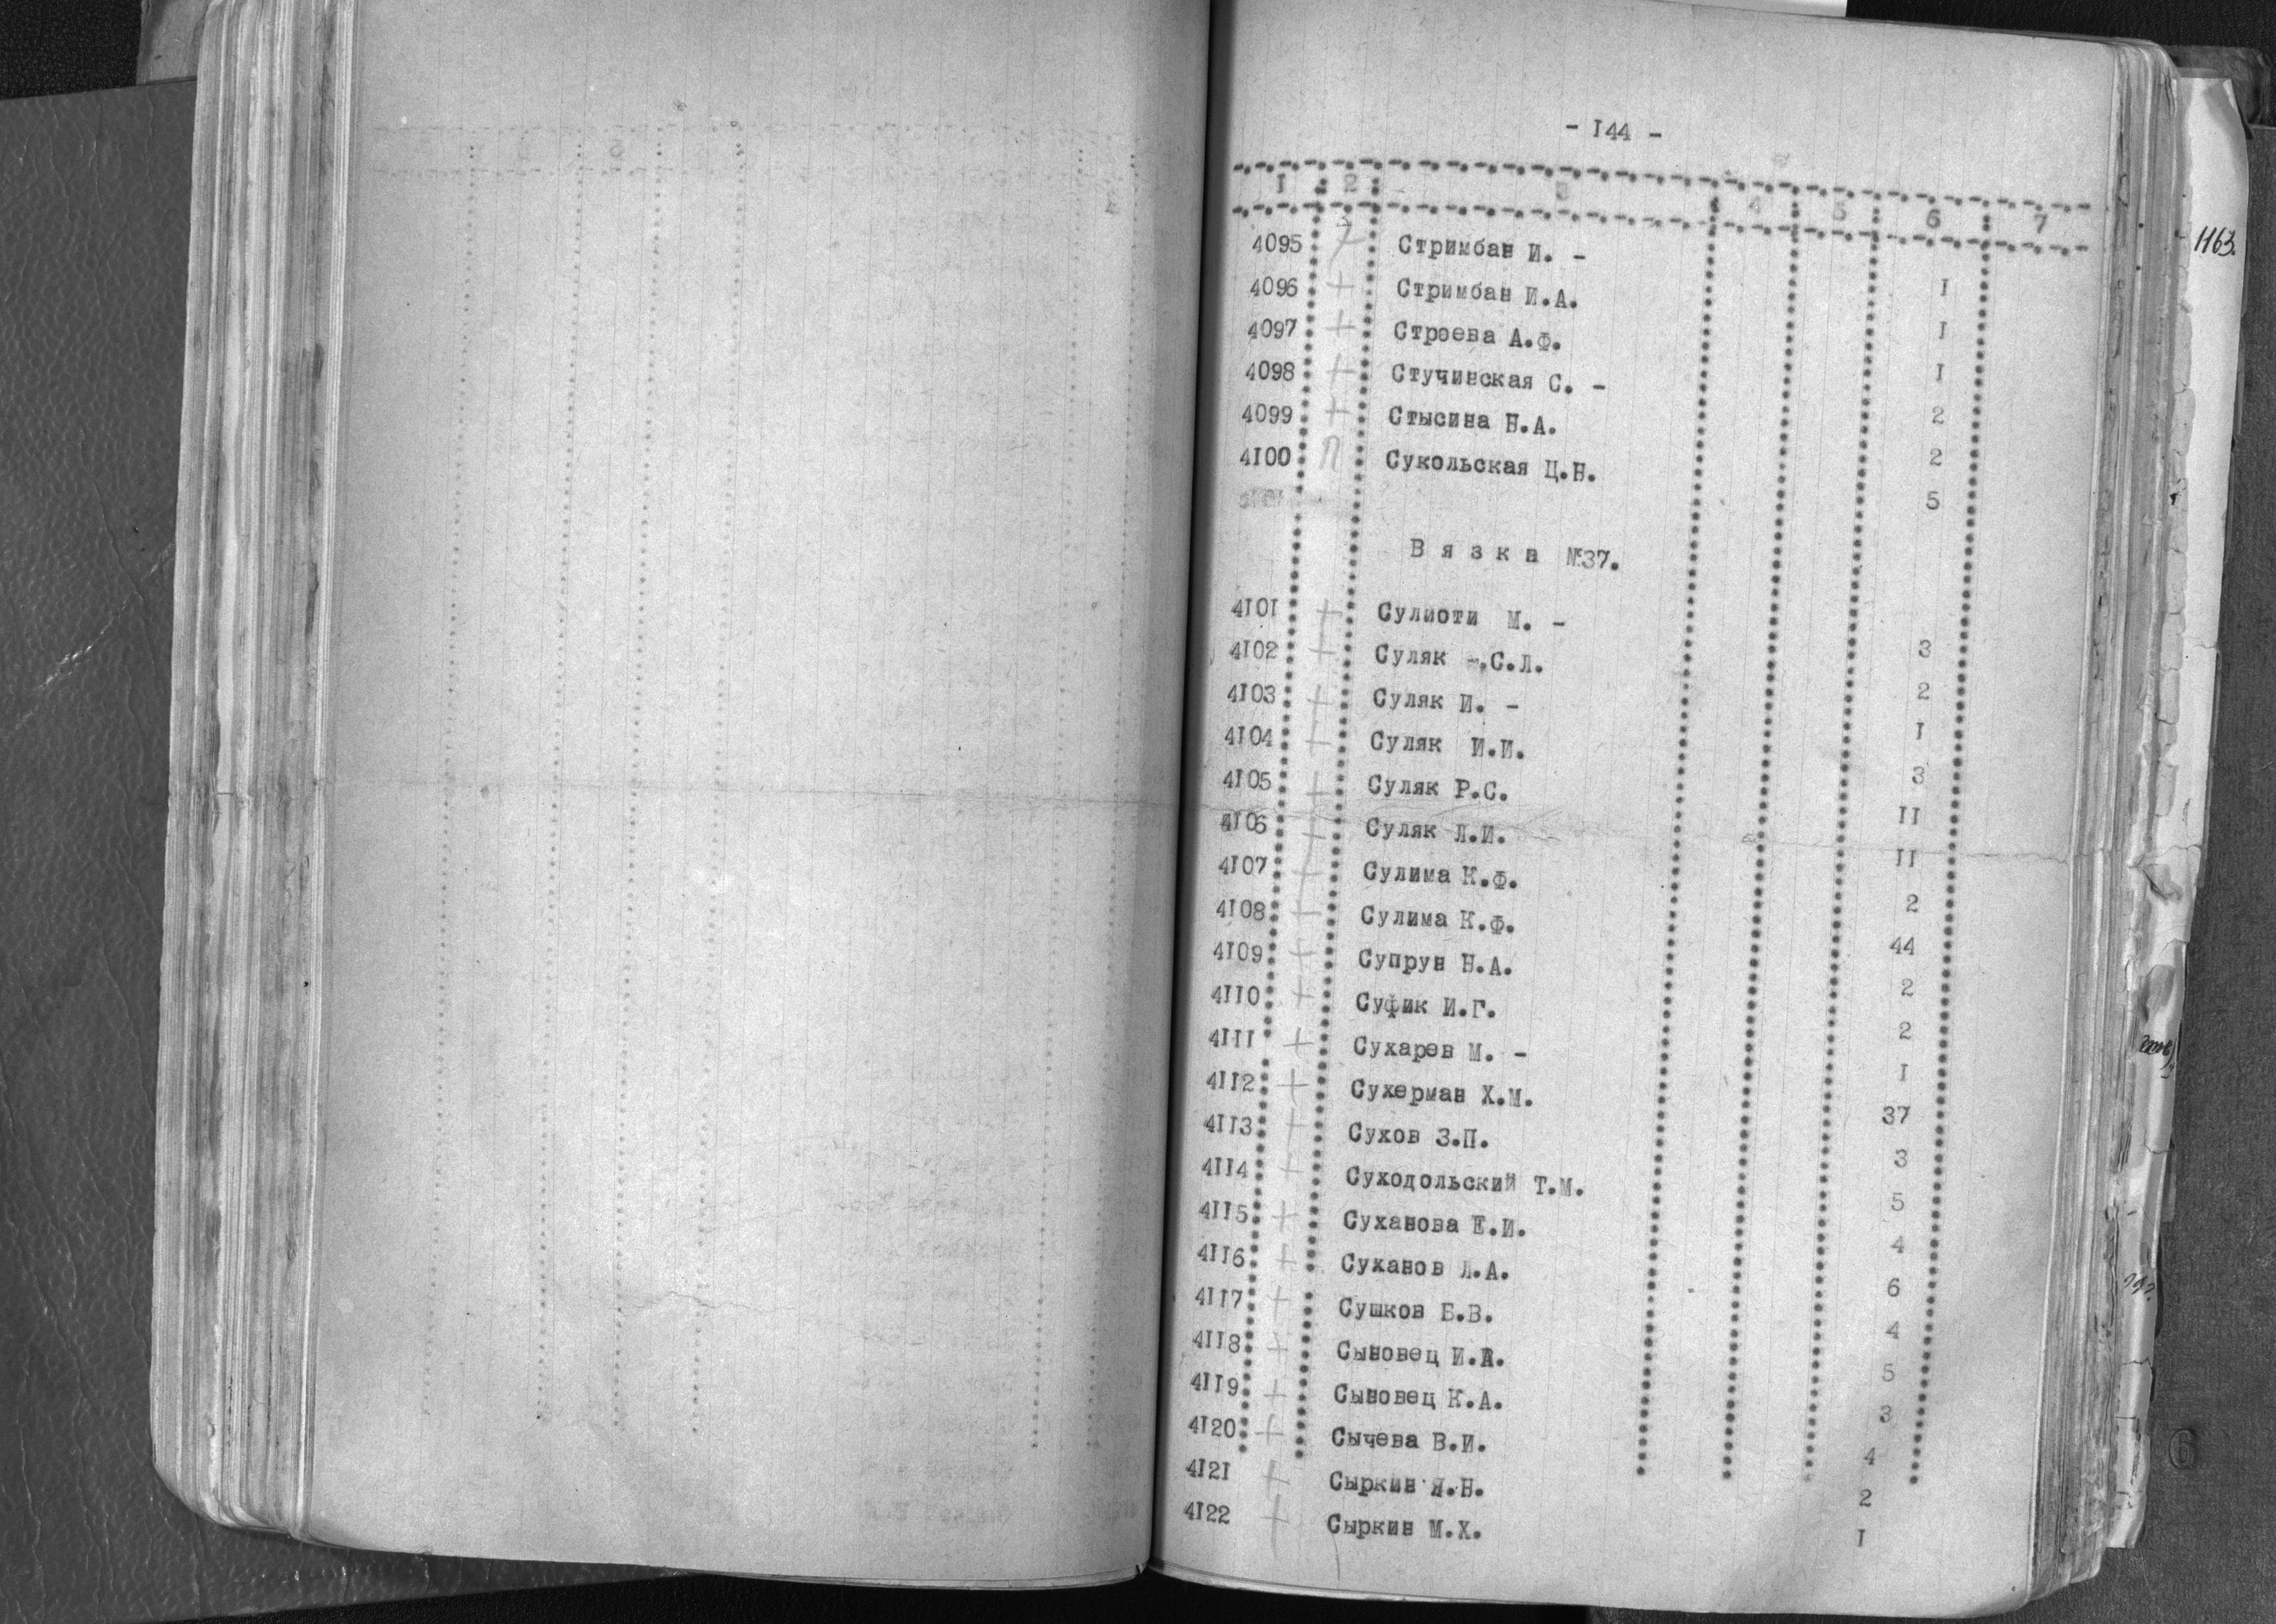 - I44 -
I 2 3 4 5 6 7
4095 + Стримбан И. - I
4096 + Стримбан И.А. I
4097 + Строева А.Ф. I
4098 + Стучинская С. - 2
4099 + Стысина Н.А. 2
4I00 П Сукольская Ц.Н. 5
Вязка №37.
4I0I + Сулиоти М. - 3
4I02 + Суляк -.С.Л. 2
4I03 + Суляк И. - I
4I04 + Суляк И.И. 3
4I05 + Суляк Р.С. II
4I06 + Суляк Л.И. II
4I07 + Сулима К.Ф. 2
4I08 + Сулима К.Ф. 44
4I09 + Супрун Н.А. 2
4II0 + Суфик И.Г. 2
4III + Сухарев М. - I
4II2 + Сухерман Х.М. 37
4II3 + Сухов З.П. 3
4II4 + Суходольский Т.М. 5
4II5 + Суханова Е.И. 4
4II6 + Суханов Л.А. 6
4II7 + Сушков Б.В. 4
4II8 + Сыновец И.А. 5
4II9 + Сыновец К.А. 3
4I20 + Сычева В.И. 4
4I2I + Сыркин Я.Н. 2
4I22 + Сыркин М.Х. I
1163.